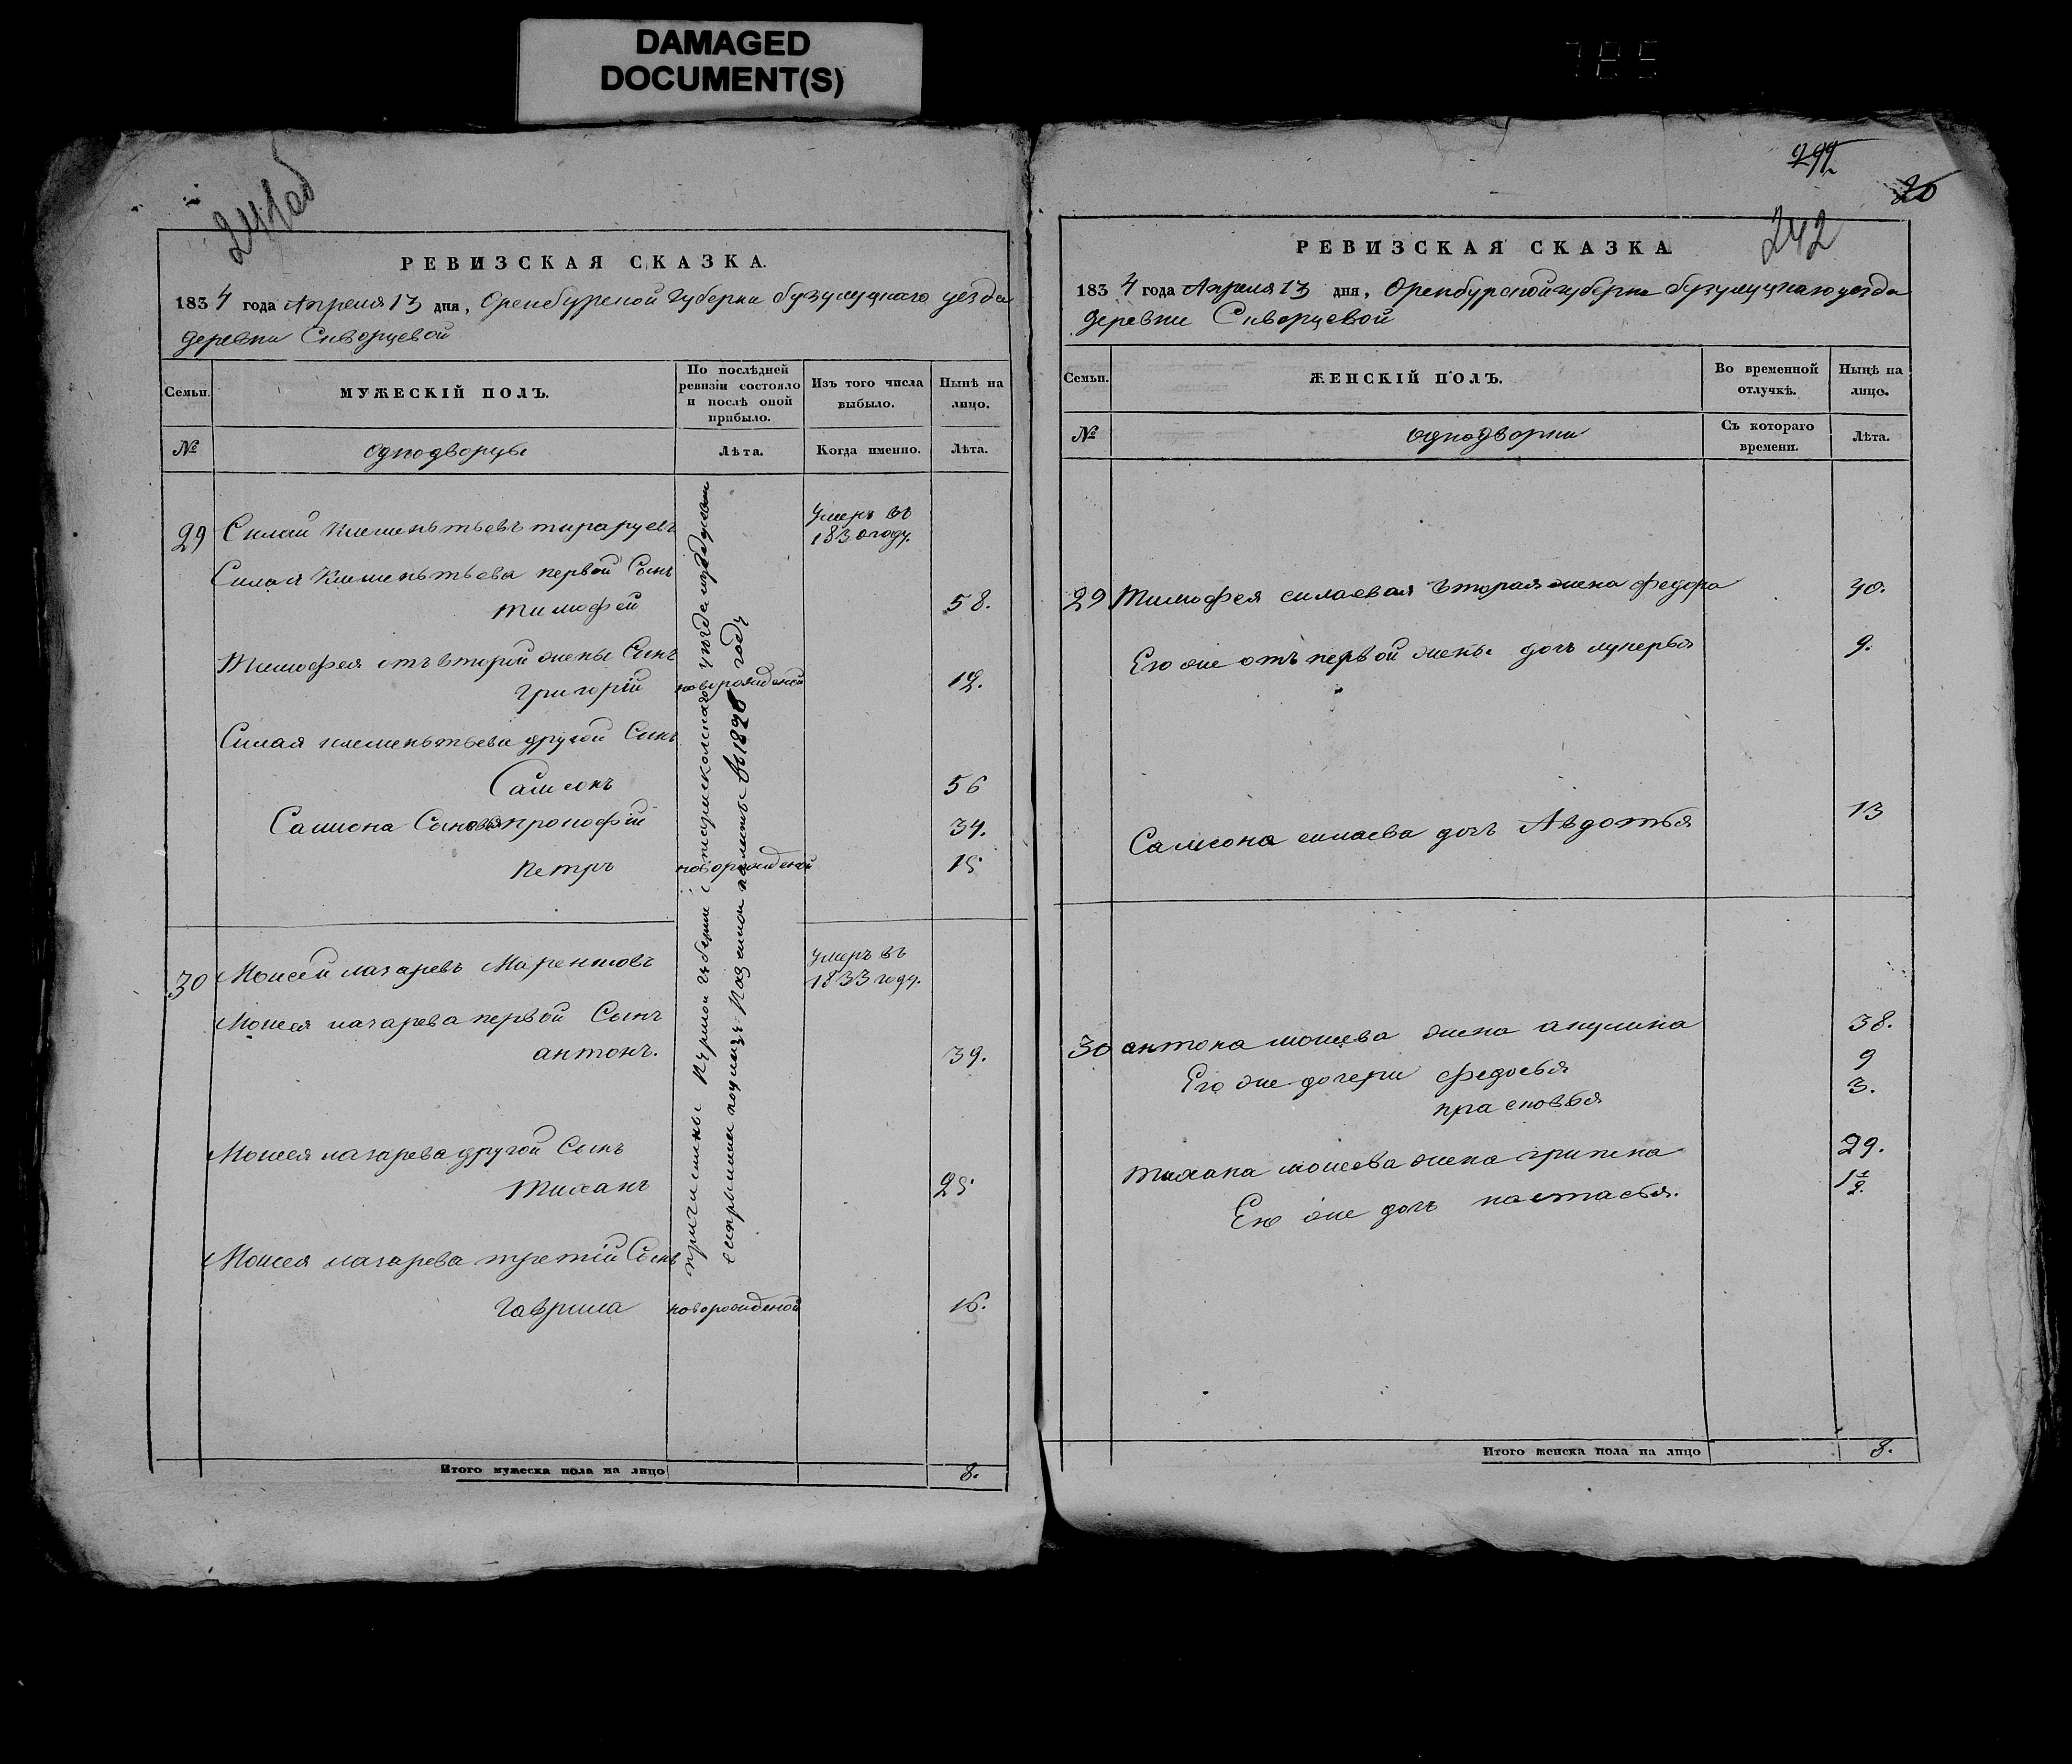 DAMAGED
DOCUMENT(S)
241об
РЕВИЗСКАЯ СКАЗКА.
1834 года Апреля 13 дня, Оренбургской губерни бузулуцкаго уезда
деревни Скворцевой
Семьи.
МУЖЕСКІЙ ПОЛЪ.
По послѣдней
ревизіи состояло
и послѣ оной
прибыло.
Изъ того числа
выбыло.
Нынѣ на
лицо.
№
однодворцы
Лѣта.
Когда именно.
Лѣта.
29 Силай Клеменьтьевъ умеръ въ
1830 году.
Силая Клеменьтьева первой Сынъ
тимофей 58.
Тимофея отъ второй жены Сынъ
григорій новорожденой 12.
Силая клеменьтьева другой Сынъ
Самсонъ 56
Самсона Сыновья прокофій 34.
петръ новорожденой 15
30 Моисей лазаревъ умеръ въ
1833 году.
Моисея лазарева первой Сынъ
антонъ. 39.
Моисея лазарева другой Сынъ
тиханъ 25
Моисея лазарева третій Сынъ
гаврила новорожденой 16.
губернии
въ 1826 годъ
Итого мужеска пола на лицо 8.
299.
20
242
РЕВИЗСКАЯ СКАЗКА
1834 года Апреля 13 дня, Оренбургской губерни бузулуцкаго уезда
деревни Скворцевой
Семьи.
ЖЕНСКІЙ ПОЛЪ.
Во временной
отлучкѣ.
Нынѣ на
лицо.
№
однодворки
Съ котораго
времени.
Лѣта.
29 Тимофея силаевая вторая жена федора 40.
Его же отъ первой жены дочь лукерья 9.
Самсона силаева дочь Авдотья 13
30 антона моисева жена акулина 38.
Его же дочери федосья 9
прасковья 3.
тихана моисева жена 29.
Его же дочь настасья. 1½.
Итого женска пола на лицо 8.